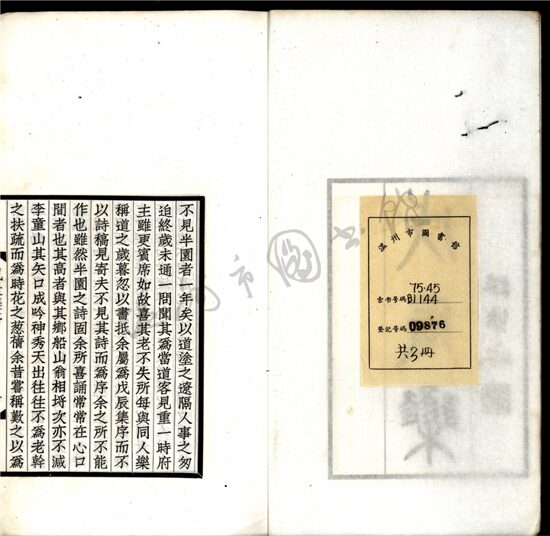 温州市圖書館
索书号碼 75·45 B1144
登記号碼 09876
共3冊
不見半園者一年矣以道塗之遼隔人事之匆
迫終歲未通一問聞其為當道客見重一時府
主雖更賓席如故喜其老不失所每與同人樂
稱道之歲暮忽以書抵余屬為戊辰集序而不
以詩稿見寄夫不見其詩而為序余之所不能
作也雖然半園之詩固余所喜誦常常在心口
間者也其高者與其鄉船山翁相埒次亦不減
李童山其矢口成吟神秀天出往往不為老幹
之扶疏而為時花之葱蒨余昔嘗稱歎之以為